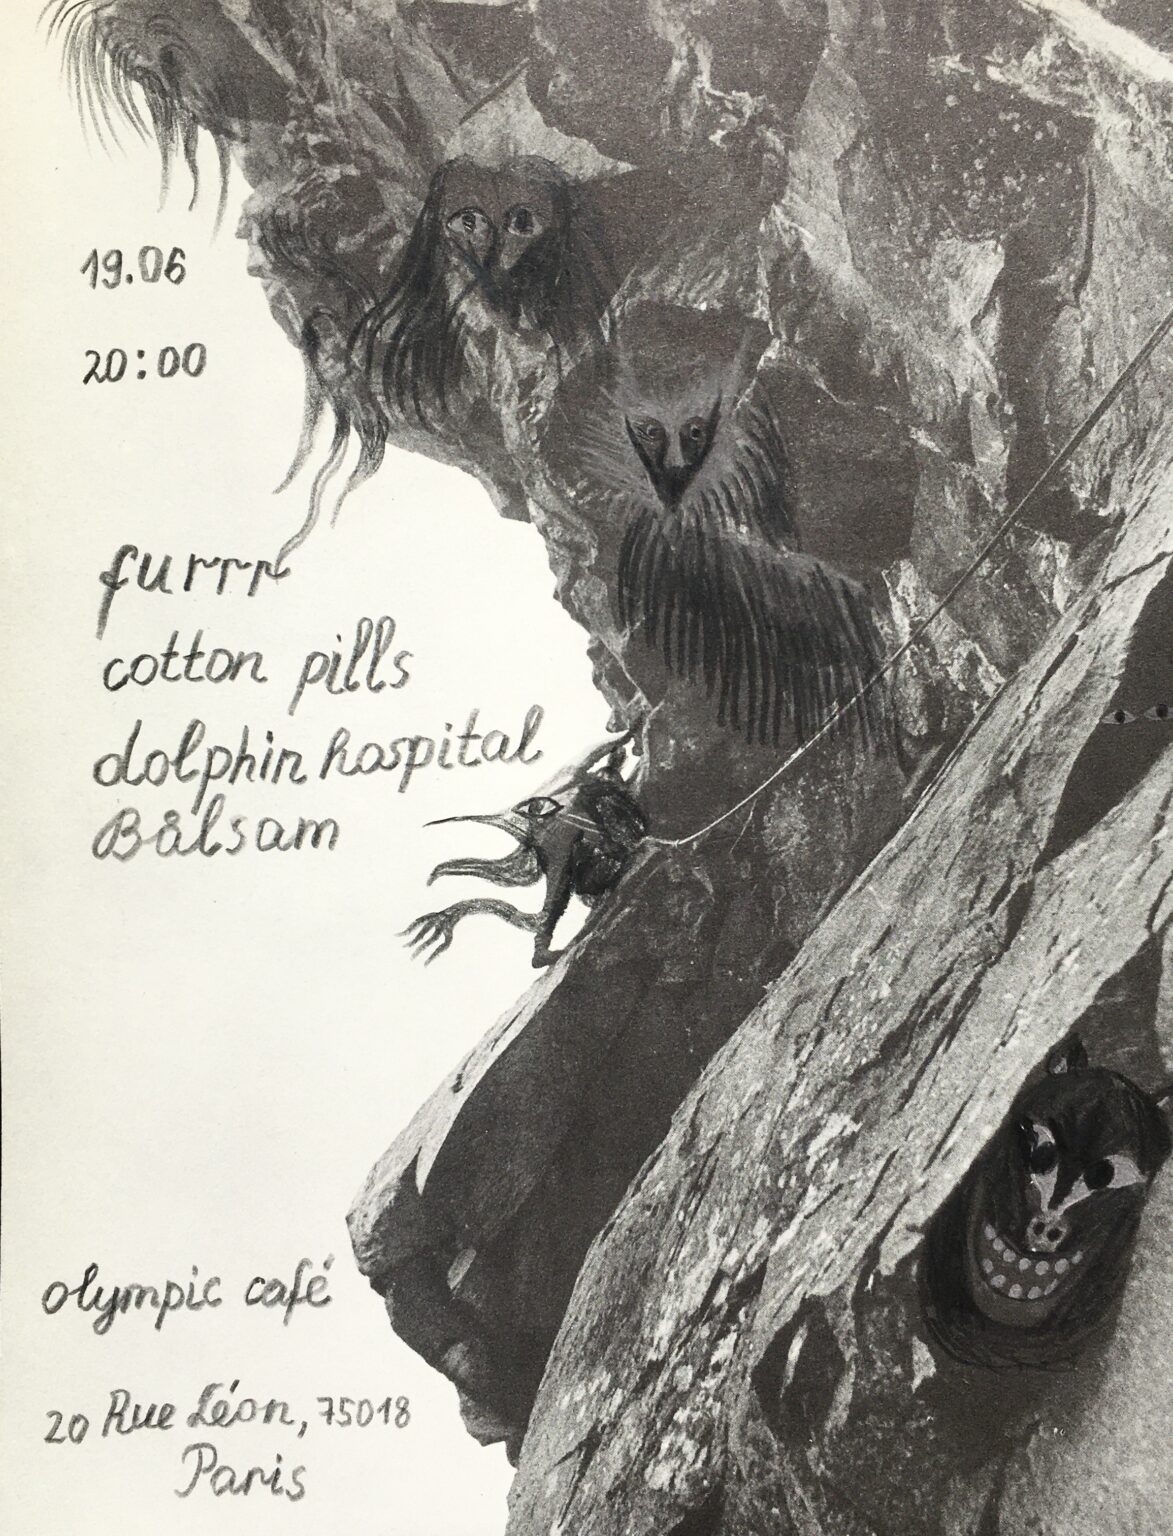 19.06
20:00
furrr
cotton pills
dolphin hospital
Bålsam
olympic café
20 Rue Léon, 75018
Paris